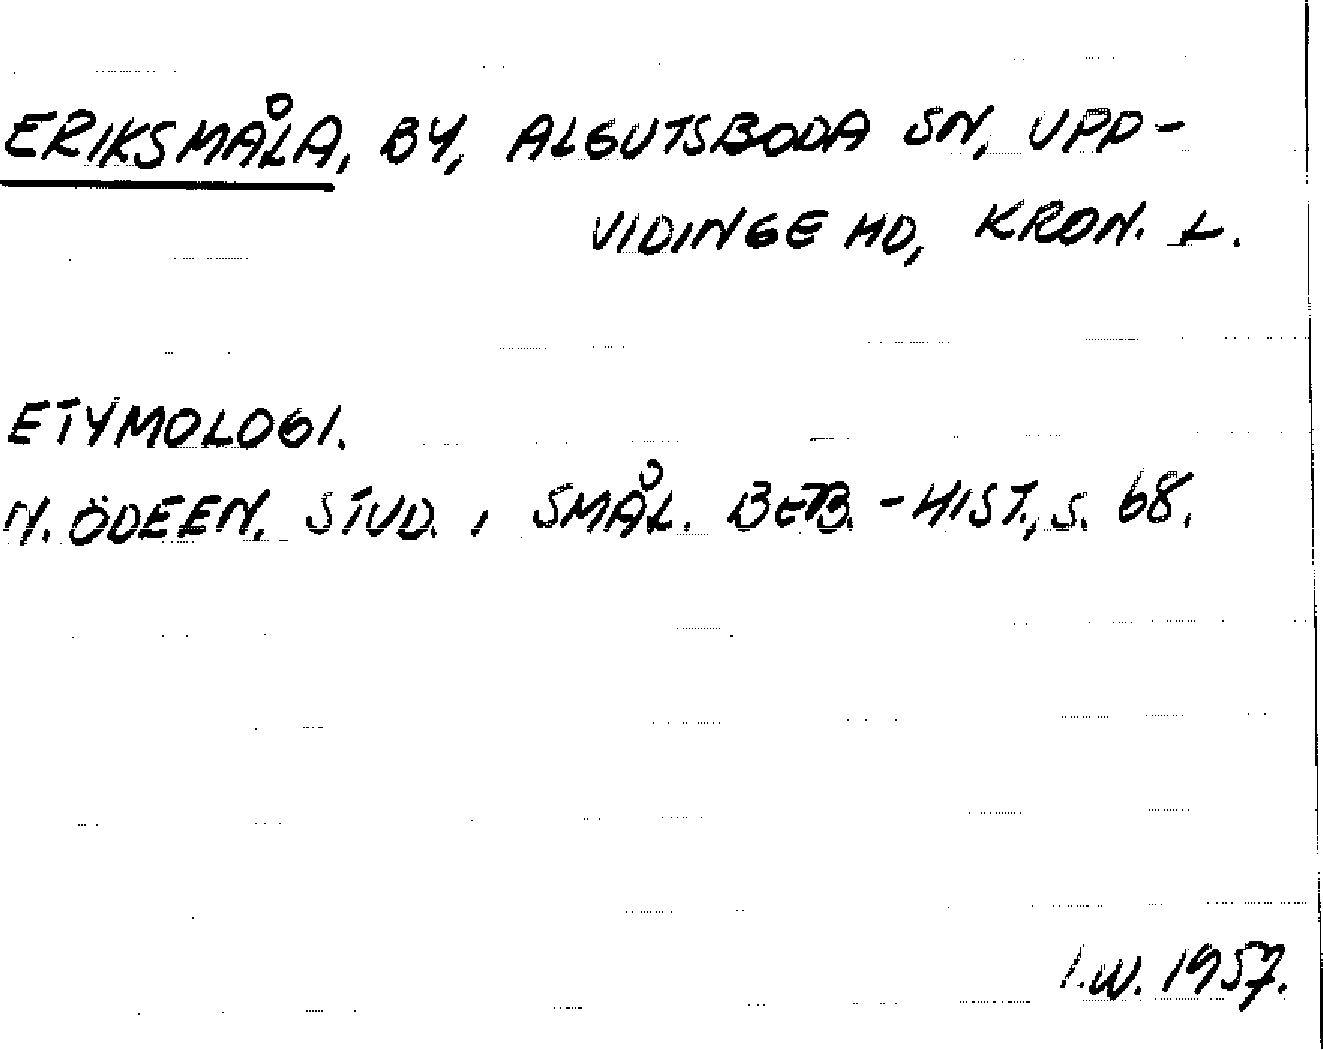 ERIKSMÅLA, BY, ALGUTSBODA SN, UPP-
VIDINGE HD, KRON. L.
ETYMOLOGI.
N. ÖDEEN. STUD. I SMÅL. BEB.-HIST., S. 68.
I.W. 1957.